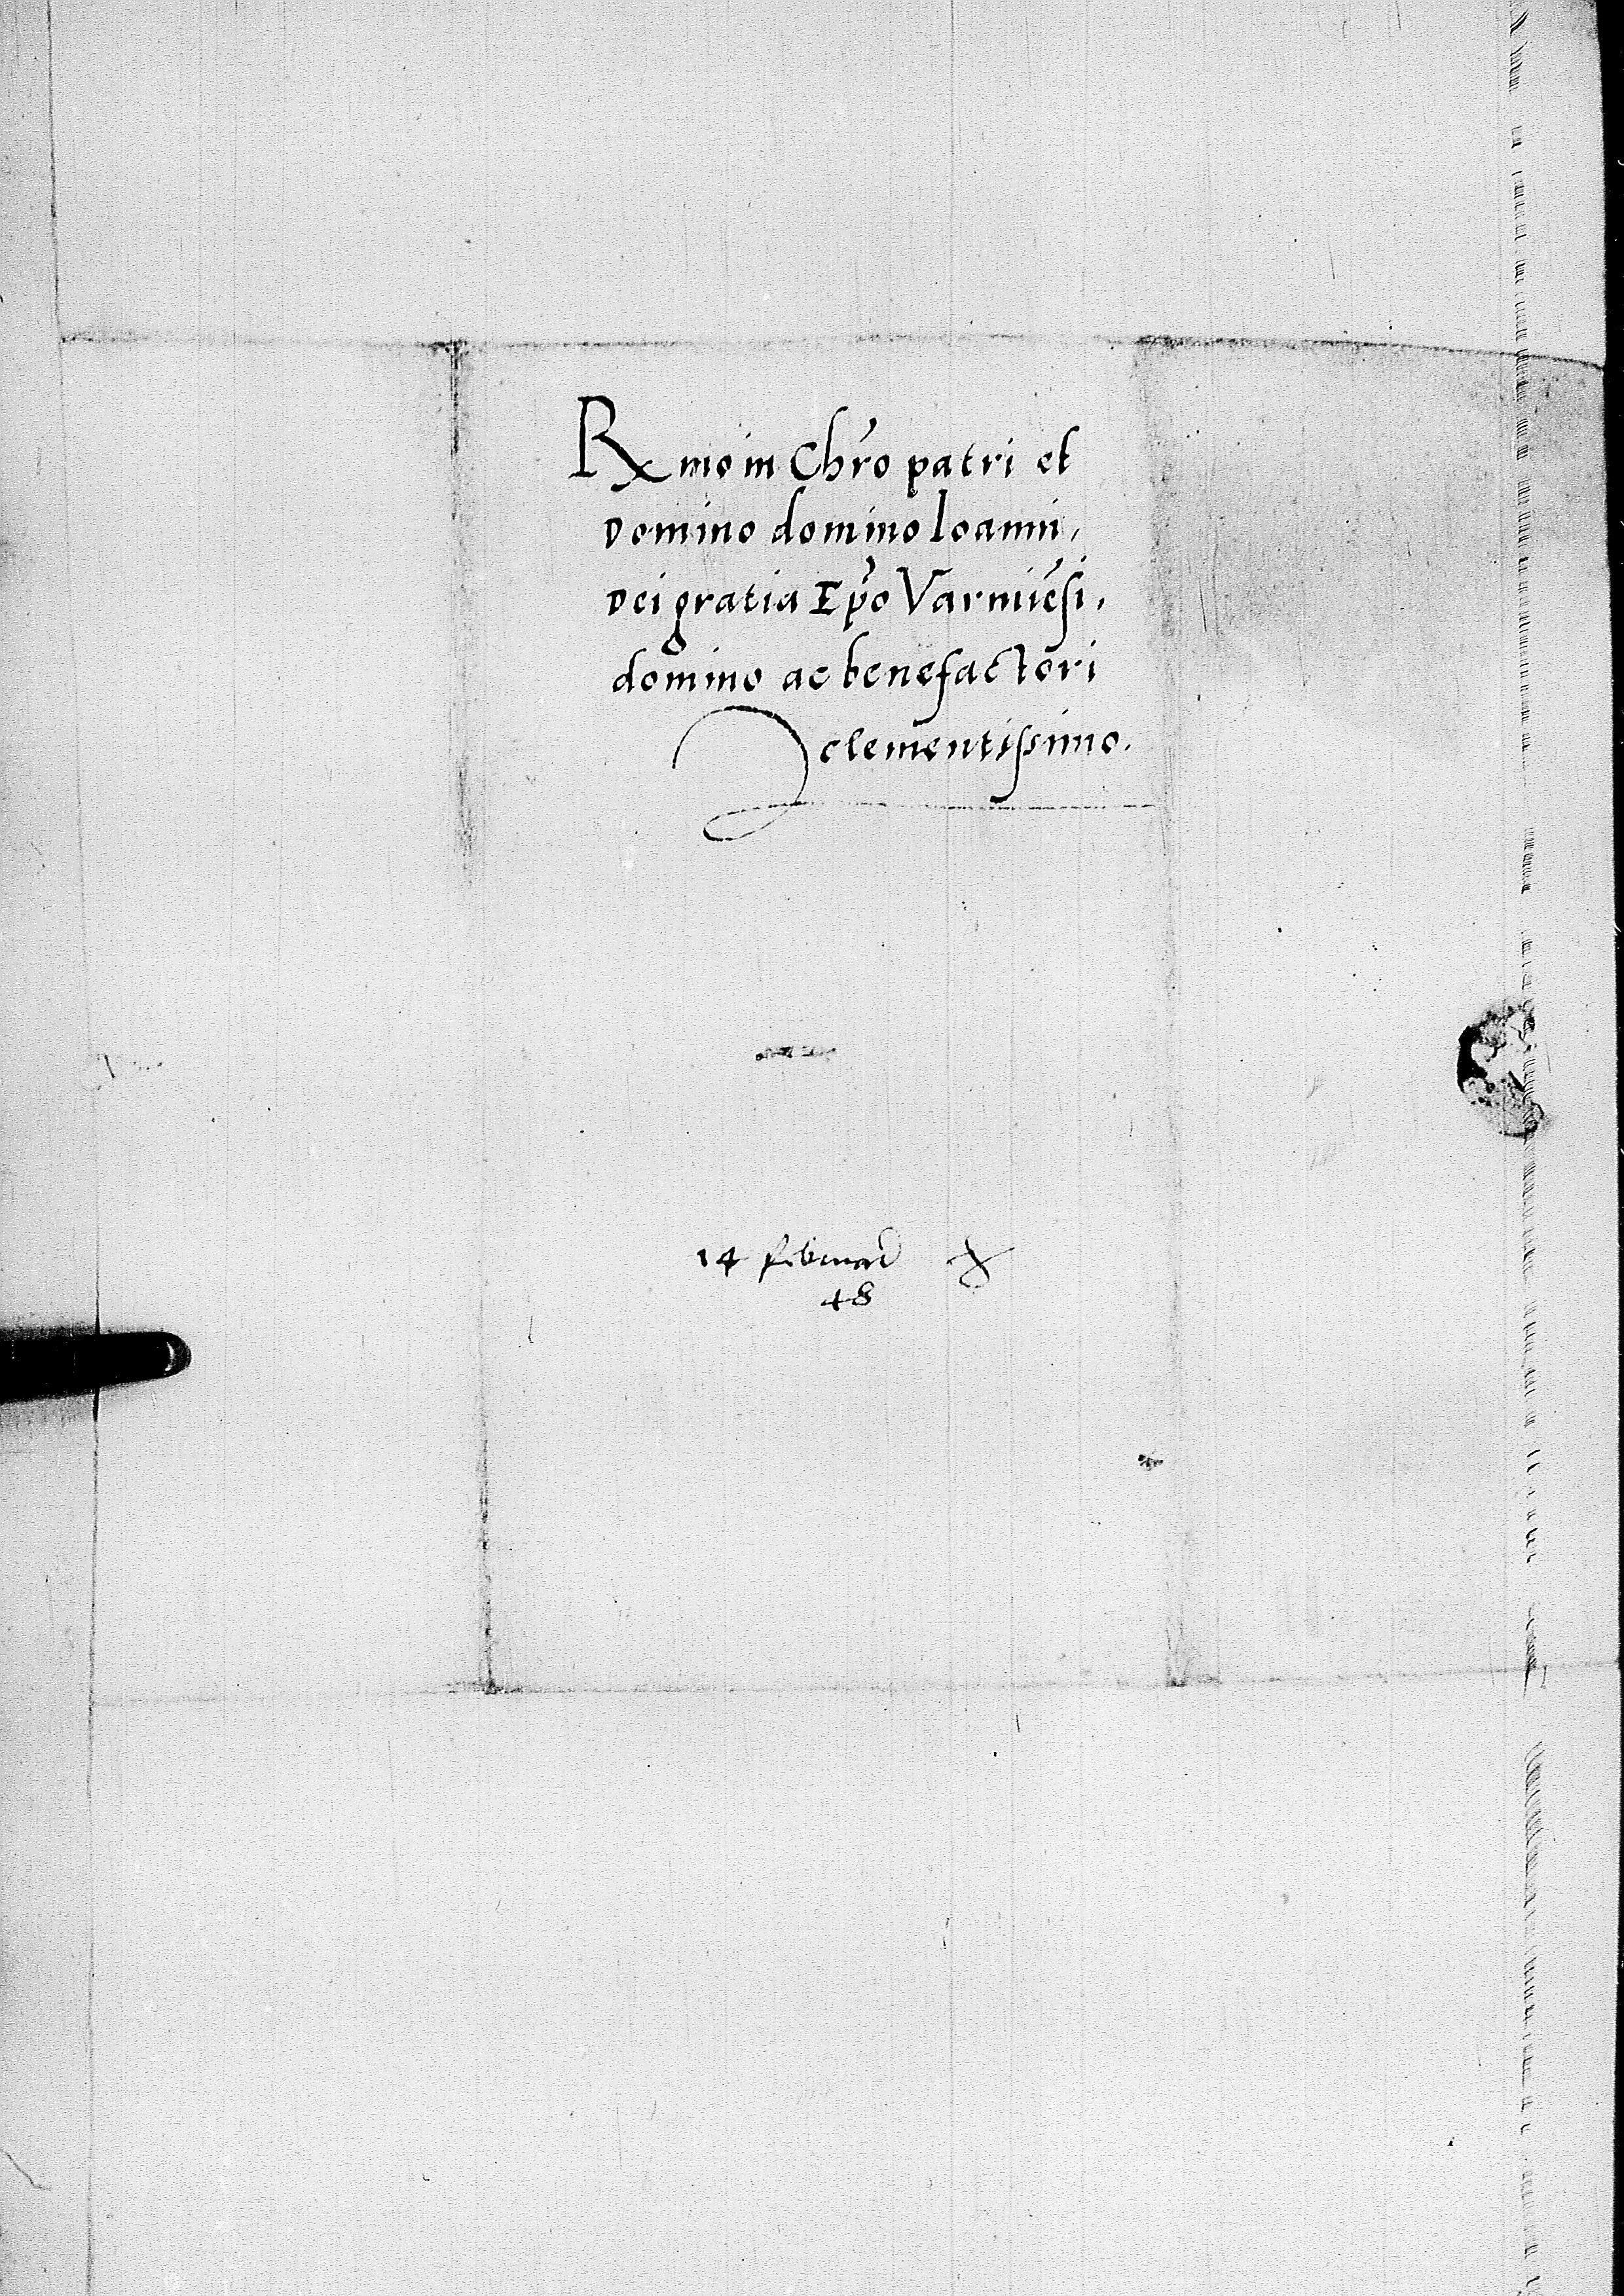 Rmo in Chro patri et
Domino domino Ioanni,
Dei gratia Epo Varmiesi,
domino ac benefactori
clementissimo.
14 februar
48